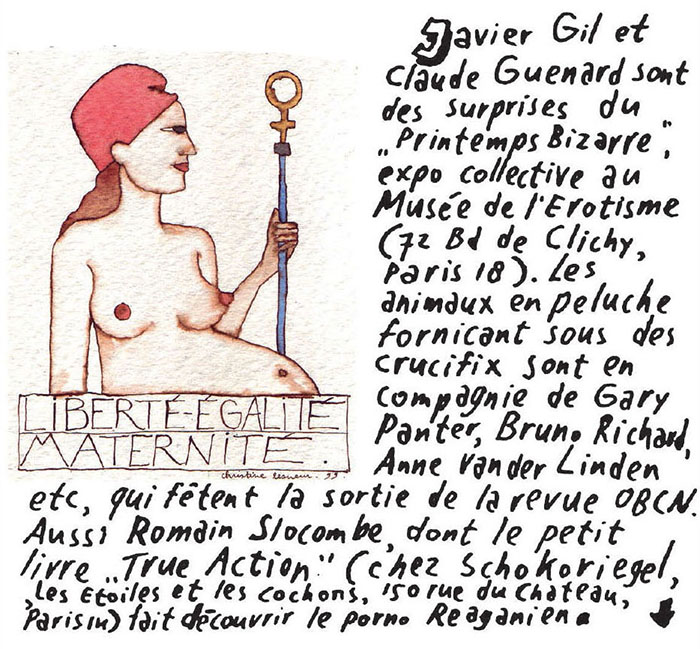 Javier Gil et
Claude Guenard sont
des surprises du
„Printemps Bizarre",
expo collective au
Musée de l'Erotisme
(72 Bd de Clichy,
Paris 18). Les
animaux en peluche
fornicant sous des
crucifix sont en
compagnie de Gary
Panter, Bruno Richard,
Anne Van der Linden
etc, qui fêtent la sortie de la revue OBCN.
Aussi Romain Slocombe, dont le petit
livre „True Action" (chez Schokoriegel,
„Les Etoiles et les cochons, 150 rue du Chateau,
Paris 14) fait découvrir le porno Reaganien.
LIBERTÉ-ÉGALITÉ
MATERNITÉ.
christine lesueur. 99